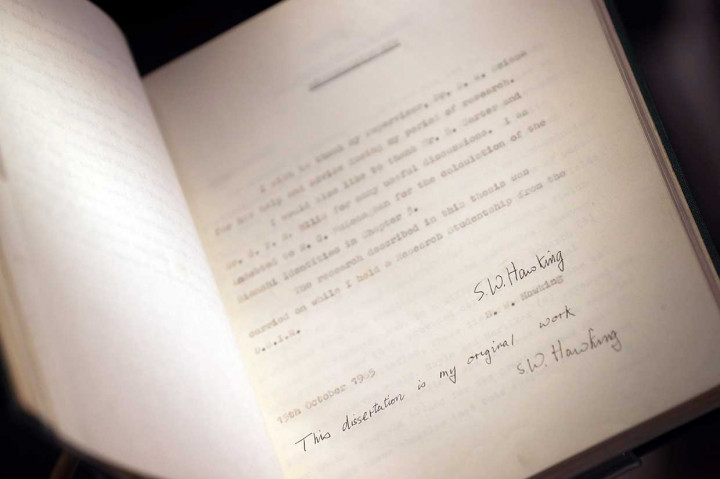 I wish to thank my supervisor, Dr. D. W. Sciama
for his help and advice during my period of research.
I would also like to thank Mr. B. Carter and
Mr. G. F. R. Ellis for many useful discussions. I am
indebted to R. G. McLenaghan for the calculation of the
Bianchi Identities in Chapter
The research described in this thesis was
carried on while I held a Research Studentship from the
D.S.I.R.
S.W. Hawking
S. W. Hawking
15th October
This dissertation is my original work
S.W. Hawking